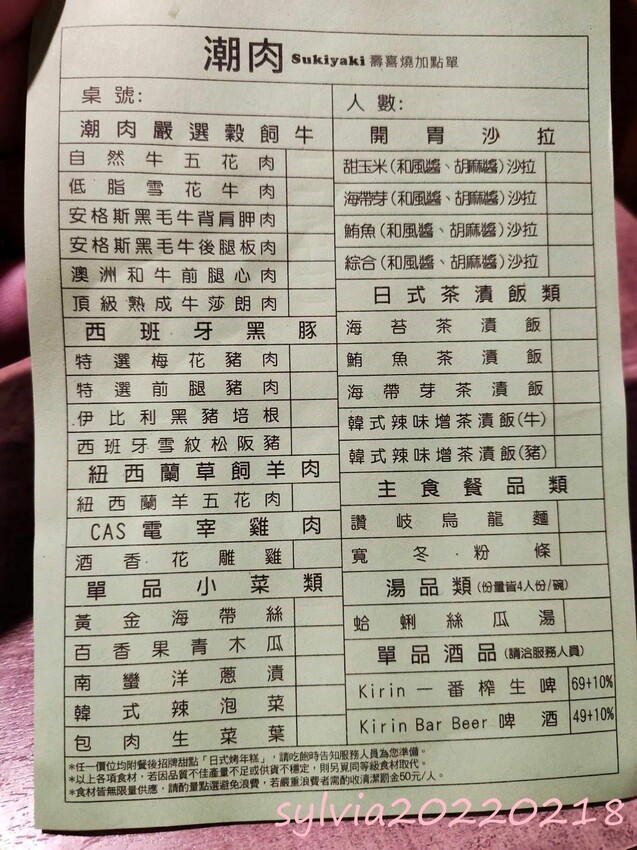 潮肉 Sukiyaki 壽喜燒加點單
桌號:
潮肉嚴選穀飼牛
自然牛五花肉
低脂雪花牛肉
安格斯黑毛牛背肩胛肉
安格斯黑毛牛後腿板肉
澳洲和牛前腿心肉
頂級熟成牛莎朗肉
西班牙黑豚
特選梅花豬肉
特選前腿豬肉
伊比利黑豬培根
西班牙雪紋松阪豬
紐西蘭草飼羊肉
紐西蘭羊五花肉
CAS電宰雞肉
酒香花雕雞
單品小菜類
黃金海帶絲
百香果青木瓜
南蠻洋蔥漬
韓式辣泡菜
包肉生菜葉
人數:
開胃沙拉
甜玉米(和風醬、胡麻醬)沙拉
海帶芽(和風醬、胡麻醬)沙拉
鮪魚(和風醬、胡麻醬)沙拉
綜合(和風醬、胡麻醬)沙拉
日式茶漬飯類
海苔茶漬飯
鮪魚茶漬飯
海帶芽茶漬飯
韓式辣味增茶漬飯(牛)
韓式辣味增茶漬飯(豬)
主食餐品類
讚岐烏龍麵
寬冬粉條
湯品類(份量皆4人份/碗)
蛤蜊絲瓜湯
單品酒品(請洽服務人員)
Kirin一番榨生啤 69+10%
Kirin Bar Beer啤酒 49+10%
*任一價位均附餐後招牌甜點「日式烤年糕」,請吃飽時告知服務人員為您準備。
*以上各項食材,若因品質不佳產量不足或供貨不穩定,則另覓同等級食材取代。
*食材皆無限量供應,請酌量點選避免浪費,若嚴重浪費者需酌收清潔罰金50元/人。
sylvia20220218